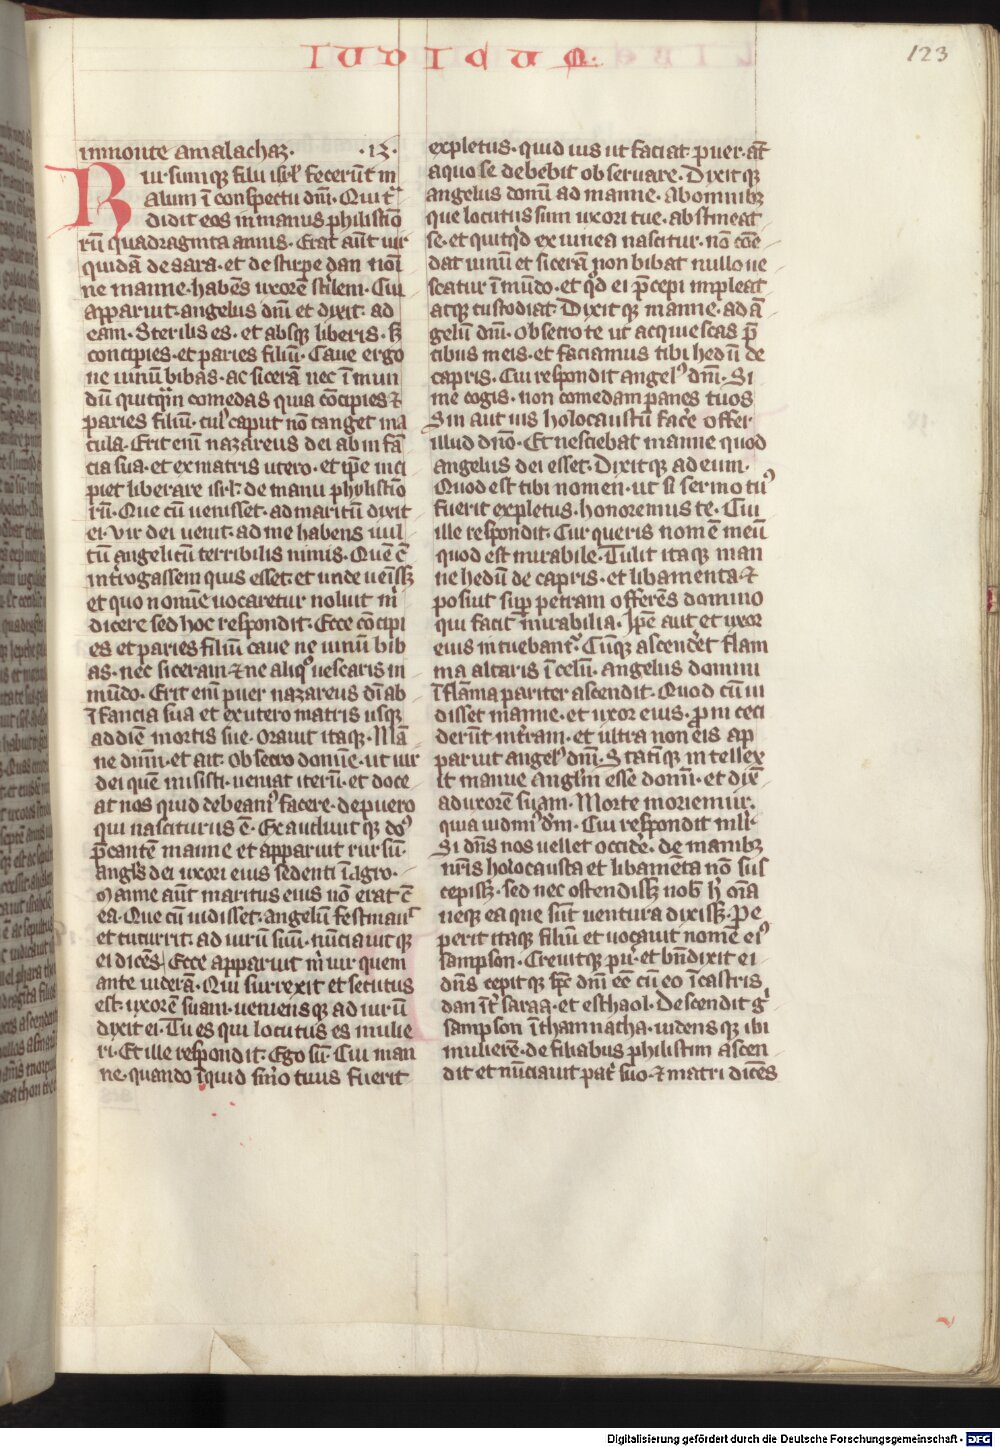 IUDICUM.
123
in monte amalachaz. .13.
Rursumqꝫ filii isrl' fecerūt m
alum ī conspectu dm̄i. Qui tͣ
didit eos in manus philistino
rū quadraginta annis. Erat aūt uir
quidā de sara. et de stirpe dan nomī
ne manne. habēs uxorē st'ilem. Cui
apparuit. angelus dn̄i et dixit. ad
eam. Sterilis es. et absqꝫ liberis. sꝫ
concipies. et paries filiū. Caue ergo
ne uinū bibas. ac sicerā nec ī mun
dū quitqͣm comedas quia cōcipies ⁊
paries filiū. cuiꝰ caput nō tanget nia
cula. Erit enī nazareus dei ab in fā
cia sua. et ex matris utero. et ipē inci
piet liberare isrl'. de manu phylistino
rū. Que cū uenisset. ad maritū dixit
ei. Vir dei uenit. ad me habens uul
tū angelicū terribilis nimis. Quē cū
int'rogassem quis esset. et unde uēissꝫ
et quo nomine uocaretur noluit m̄
dicere sed hoc respondit. Ecce cōcipi
es et paries filiū caue ne uinū bib
as. nec siceram ⁊ ne aliqͦ uescaris in
mūdo. Erit enī puer nazareus dn̄i ab
īfancia sua et ex utero matris usqꝫ
ad diē mortis sue. Orauit itaqꝫ. Mā
ne dn̄m. et ait. Obsecro domine. ut uir
dei quē misisti. ueniat iterū. et doce
at nos quid debeamꝰ facere. de puero
qui nasciturus ē. Exaudiuit qꝫ dn̄s
p̄cantē manne et apparuit rursū.
angl's dei uxori eius sedenti ī agro.
Manne aūt maritus eius nō erat cū
ea. Que cū uidisset. angelū festinauͭ
et cucurrit. ad uirū suū. nūciauit qꝫ
ei dicēs. Ecce apparuit m̄ uir quem
ante uiderā. Qui surrexit et secutus
est. uxorē suam. ueniens qꝫ ad uirū
dixit ei. Tu es qui locutus es mulie
ri. Et ille respondit. Ego sū. Cui man
ne. quando īquid s'mo tuus fuerit
expletus. quid uis ut faciat puer. aūt
a quo se debebit obseruare. Dixit qꝫ
angelus domī ad manne. Ab omnibꝫ
que locutus sum uxori tue. abstineat
se. et quitqͥd ex uinea nascitur. nō come
dat uinū et sicerā non bibat nullo ue
scatur ī mūdo. et qͥd ei p̄cepi impleat
atqꝫ custodiat. Dixit qꝫ manne. ad ā
gelū dn̄i. Obsecro te ut acquiescas p̄
cibus meis. et faciamus tibi hedū de
capris. Cui respondit angelꝰ dn̄i. Si
me cogis. non comedam panes tuos
Sin aut uis holocaustū facere offer
illud dn̄o. Et nesciebat manne quod
angelus dei esset. Dixit qꝫ ad eum.
Quod est tibi nomen. ut si sermo tuꝰ
fuerit expletus. honoremus te. Cui
ille respondit. Cur queris nomē meū
quod est mirabile. Tulit itaqꝫ man
ne hedū de capris. et libamenta ⁊
posuit sup petram offerēs domino
qui facit mirabilia. Ipē aut et uxor
eius intuebantͬ. Cūqꝫ ascenderet flam
ma altaris ī celū. angelus domini
ī flāma pariter ascendit. Quod cū ui
disset manne. et uxor eius. proni ceci
derūt in t'ram. et ultra non eis ap
paruit angelꝰ dn̄i. Statīqꝫ intellex
it manne angl'm esse domī. et dixͭ
ad uxorē suam. Morte moriemur.
quia uidimꝰ dm̄. Cui respondit mlꝰr
Si dn̄s nos uellet occid'e. de manibꝫ
nr̄is holocausta et libamēta nō sus
cepissꝫ. sed nec ostendissꝫ nob hͥ om̄a
neqꝫ ea que sūt uentura dixissꝫ. Pe
perit itaqꝫ filiū et uocauit nomē eiꝰ
sampson. Creuitqꝫ pu'. et bn̄dixit ei
dn̄s cepit qꝫ sp̄c dn̄i eē cū eo ī castris
dan īt' saraa. et esthaol. Descendit gͥ
sampson ī thamnatha. uidens qꝫ ibi
mulierē. de filiabus philistim ascen
dit et nūciauit pat'i suo. ⁊ matri dicēs
Digitalisierung gefördert durch die Deutsche Forschungsgemeinschaft - DFG